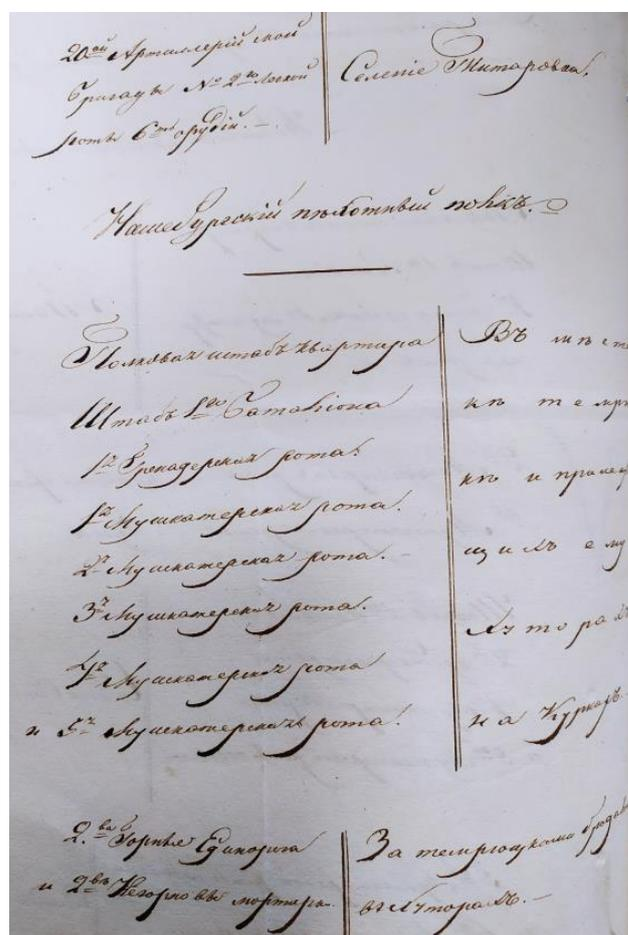 20ой Артиллерійской
бригады № 2го легкой
роты 6ть орудій. —
Селеніе Титаровка.
Нашебургскій пѣхотный полкъ.
Полковая штабъ квартира
Штабъ 1го баталіона
1я Гренадерская рота.
1я Мушкатерская рота.
2я Мушкатерская рота.
3я Мушкатерская рота.
4я Мушкатерская рота
и 5я Мушкатерская рота.
Въ мѣсте
кѣ темрю
кѣ и прилеж
щихъ ему
хуторахъ
на Куркахъ.
2ва Горные Единорога
и 2вѣ Кегорновы мортиры.
За темрюцкими
въ хуторахъ. —